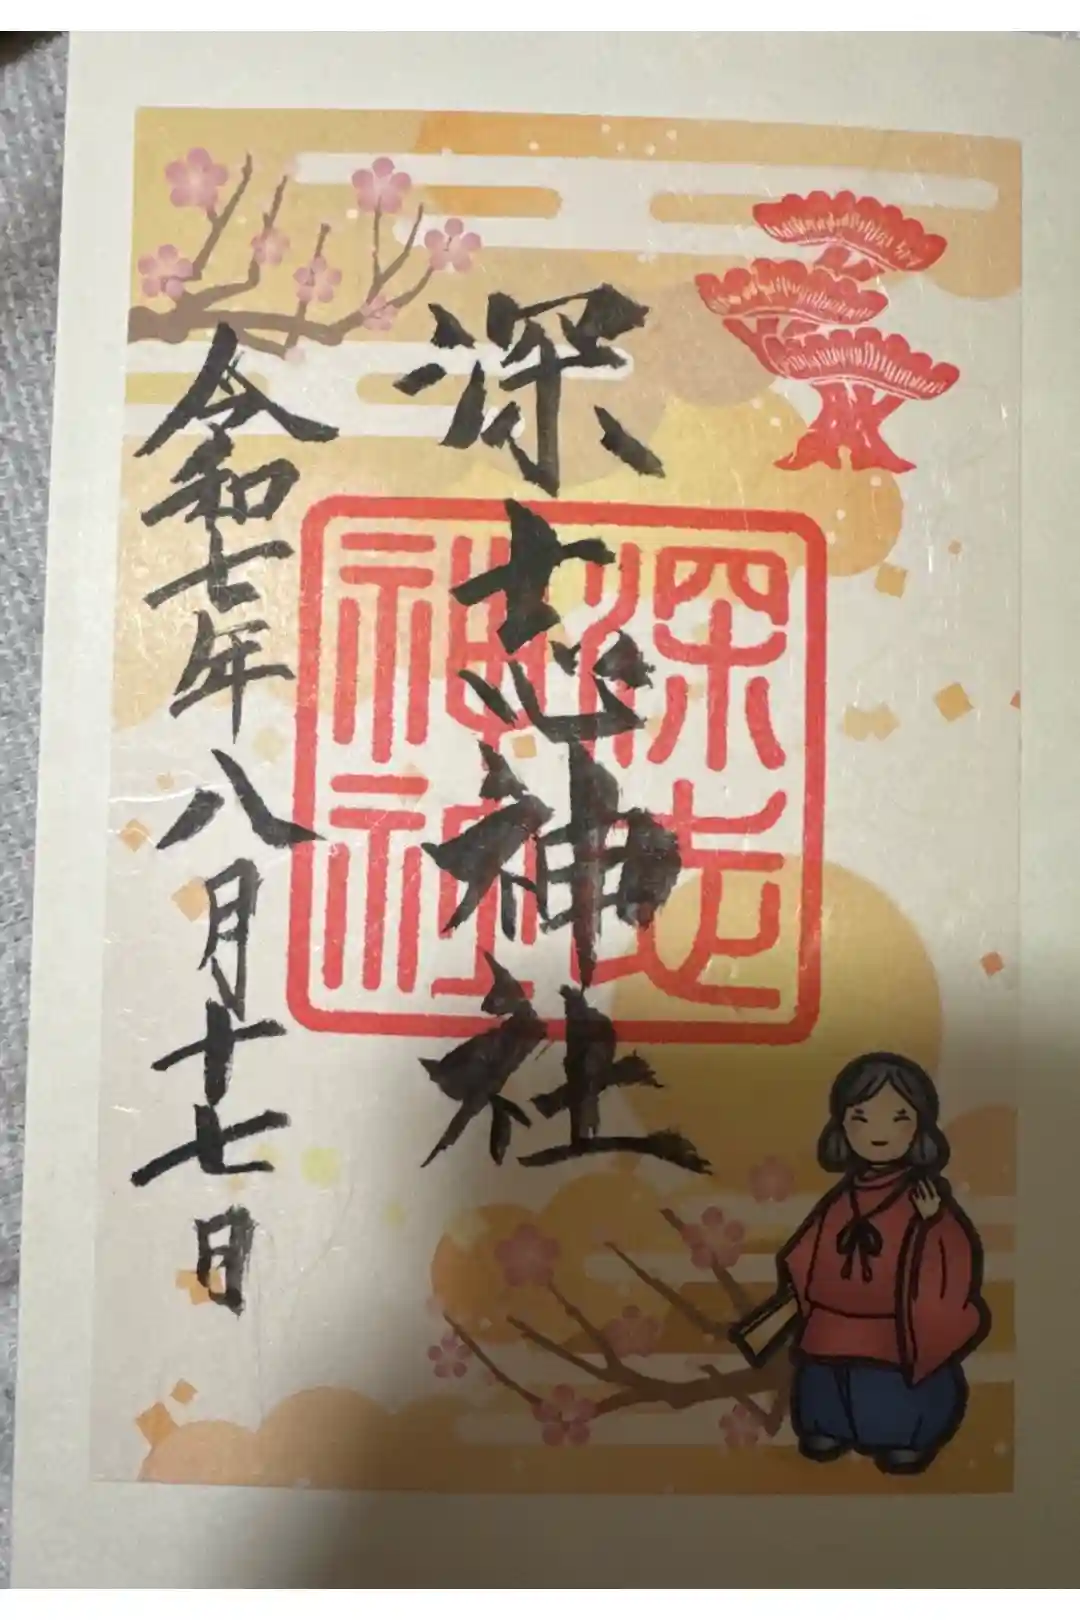 深志神社
深志神社
令和七年八月十七日